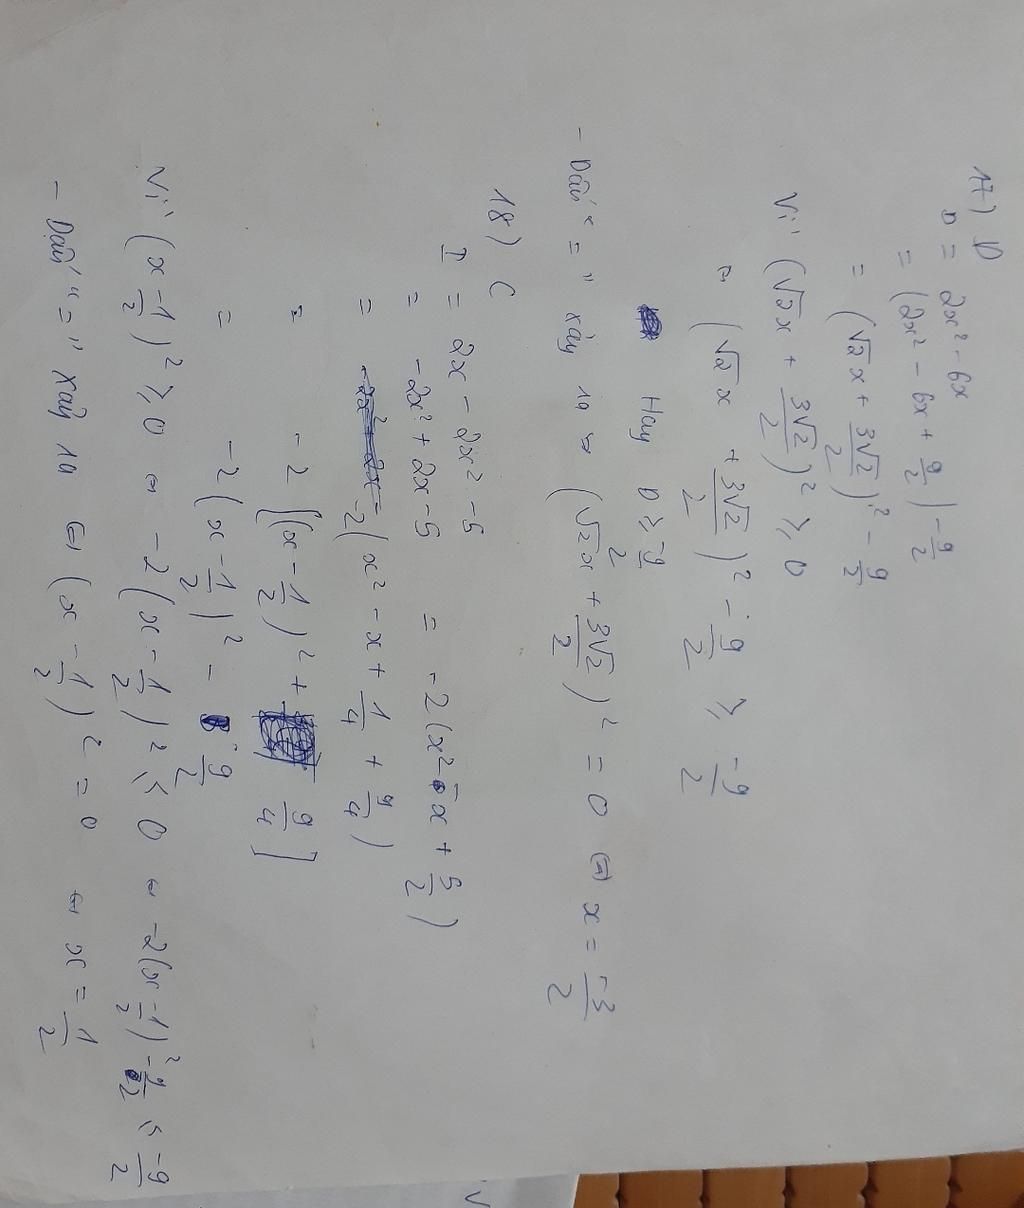 17) D
D = 2x² - 6x
= (2x² - 6x + 9/2) - 9/2
= (√2x + 3√2/2)² - 9/2
Vì (√2x + 3√2/2)² ⩾ 0
⇔ (√2x + 3√2/2)² - 9/2 ⩾ -9/2
Hay D ⩾ -9/2
- Dấu "=" xảy ra ⇔ (√2x + 3√2/2)² = 0 ⇔ x = -3/2
18) C
I = 2x - 2x² - 5
= -2x² + 2x - 5 = -2(x² - x + 5/2)
= -2(x² - x + 1/4 + 9/4)
= -2[(x - 1/2)² + 9/4]
= -2(x - 1/2)² - 9/2
Vì (x - 1/2)² ⩾ 0 ⇔ -2(x - 1/2)² ⩽ 0 ⇔ -2(x - 1/2)² - 9/2 ⩽ -9/2
- Dấu "=" xảy ra ⇔ (x - 1/2)² = 0 ⇔ x = 1/2